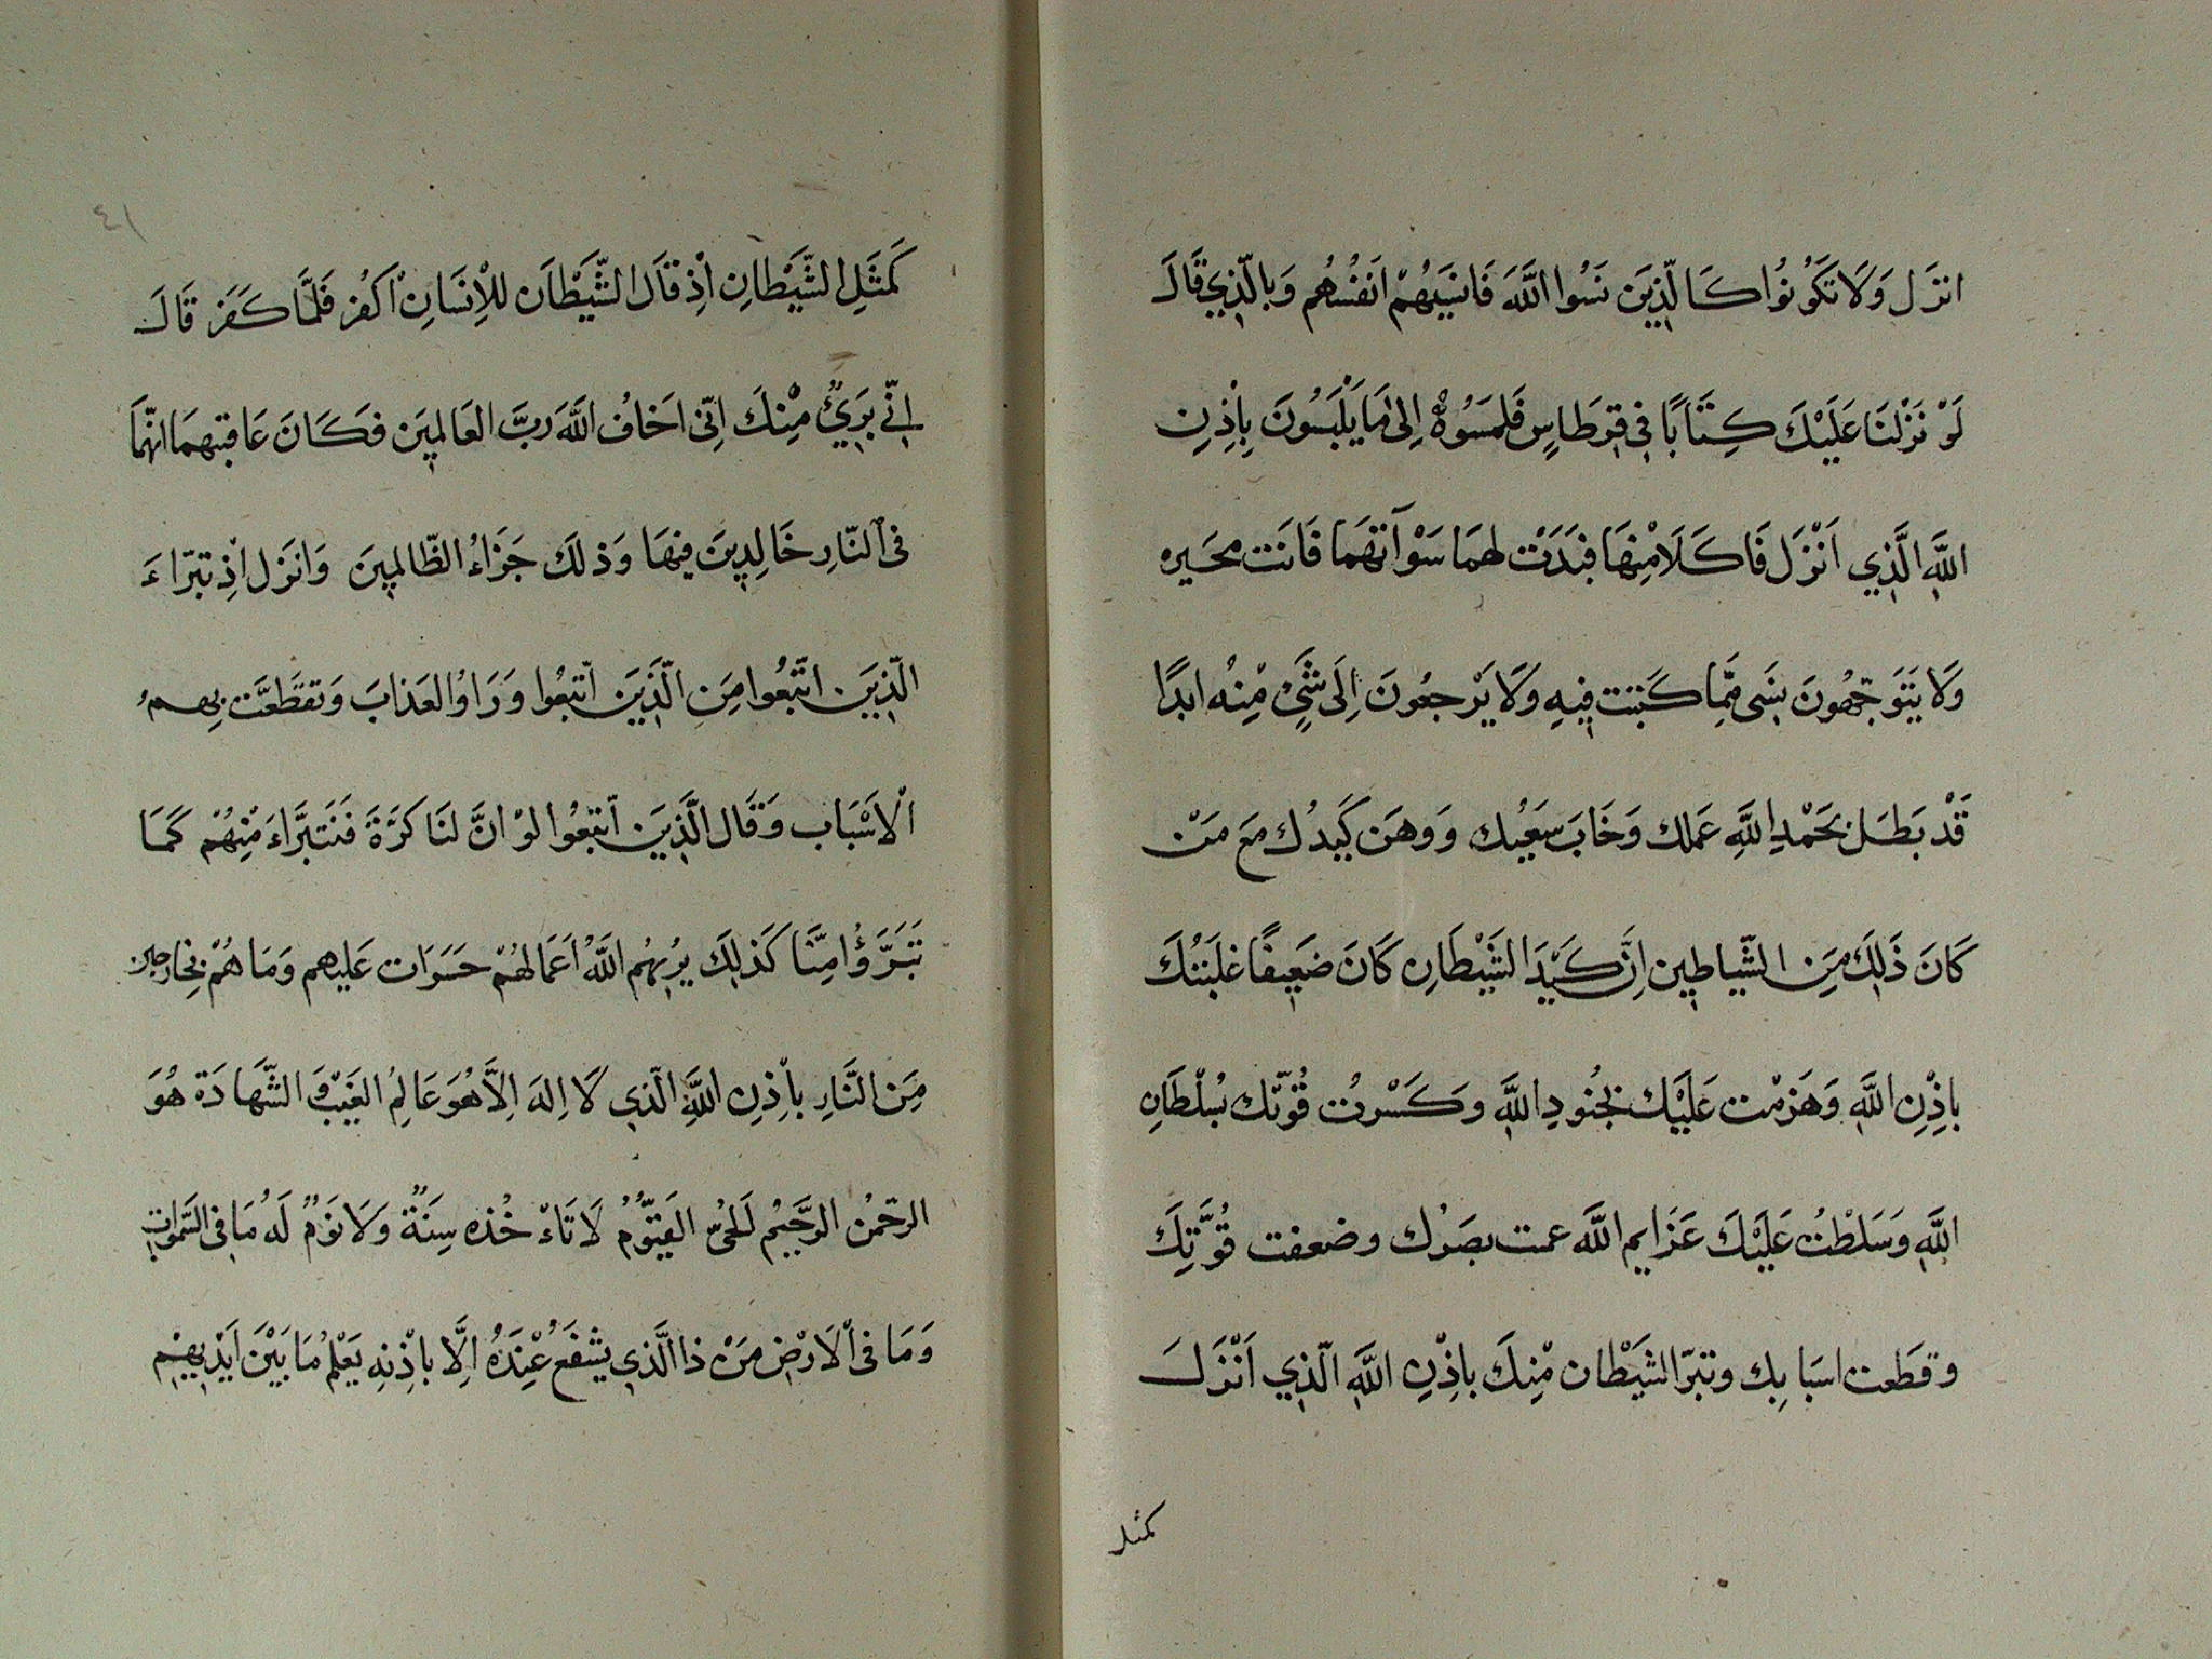 انزَل وَلَا تَكَوُنُوا كَالّذِينَ نَسُوا اللَّهَ فَانسَيهُمْ انَفُسُهُم وَبالّذِي قَالَ
لَوْ نَزْلنَا عَلَيْكَ كِتَابًا فِي قِرطَاسٍ فَلمَسُوهُ اِلىٰ مَا يَلْبَسُونَ بِاْذِنِ
اللَّهِ الَّذِي اَنْزَل فَاكَلَا مْنِهَا فبَدَتْ لهمَا سَوْآتهَما فَانَت محَيره
وَلَا يَتَوَجّهُونَ بشَىٍ مّمِا كَتبَت فِيهِ وَلَا يَرْجعُونَ اِلَى شَيٍْ مْنِهُ ابَدًا
قَدْ بَطَل بحَمْدِ اللَّهِ عَملك وَخَابَ سَعَيُك وَوهَن كَيدُك مَع مَنْ
كَانَ ذَلِكَ مِنَ الشّيَاطِين اِنَّ كَيَدَ الشَيْطَانِ كَانَ ضَعِيفًا غلَبَتُكَ
باِذِْنِ اللَّهِ وَهَزمْت عَلَيَْك بجُنُودِ اللَّهِ وَكَسْرتُ قُوّتك بُسلْطَانِ
اللَّهِ وَسَلطْتُ عَلَيْكَ عَزَايم اللَّه عمت بصَرُك وضعفت قُوَّتِكَ
وقطَعت اسَبَابِك وتبَرّا الشَيَْطان مْنِكَ باذِْنِ اللَّهِ الّذِي اَنْزَلَ
كمثل
٤١
كَمثَلِ الشَّيْطانِ اْذِ قاَل الشَّيْطاَن للْاِنسَانِ اْكَفُر فَلمَّا كَفَر قَالَ
اِنّي بَرَيٌ مْنِكَ اِنّى اخَافُ اللَّه رَبَّ العَالمِيَن فكَانَ عَاقبتهمَا انّهمَا
فىِ النّارِ خَالِدِينَ فيِهَا وَذلكَ جَزَاءُ الظّالمِيَن وَانَزل اْذِ تبَرّاءَ
الّذِيَن اتّبَعُوا مِنَ الّذَيِنَ اتّبعُوا وَرَاوُا العَذابَ وَتقَطّعَت بِهِمُ
الْاَسْبَاب وَقَال الّذِيَن اتّبعُوا لوْ انَّ لنَا كَرَّة فَنَتبَرَّاءَ مْنِهُمْ كَمَا
تَبَرَّؤُا مِنّا كَذلِكَ يُرِيهُم اللَّه اَعَمالهُمْ حسَرَات عَليهم وَمَا هُمْ بخارجين
مِنَ النَّارِ باْذِنِ اللَّهِ الّذِي لَا اِلهَ اِلاَّ هُوَ عَالِمُ الغَيْبِ وَ الشّهَادَة هُوَ
الرحّمنُ الرحَّيِمُ لَلحىُّ القَيّوُّمُ لَا تَاءْ خُذه سِنَةٌ وَلَا نوَمٌ لَهُ مَا فى السّموَاتِ
وَمَا فىِ الْاَرْضِ مَنْ ذا الَّذِي يشْفَعُ عْنِدَهُ الِّا باْذِنِه يَعْلمُ مَا بَيْنَ اَيْدِيهِمْ